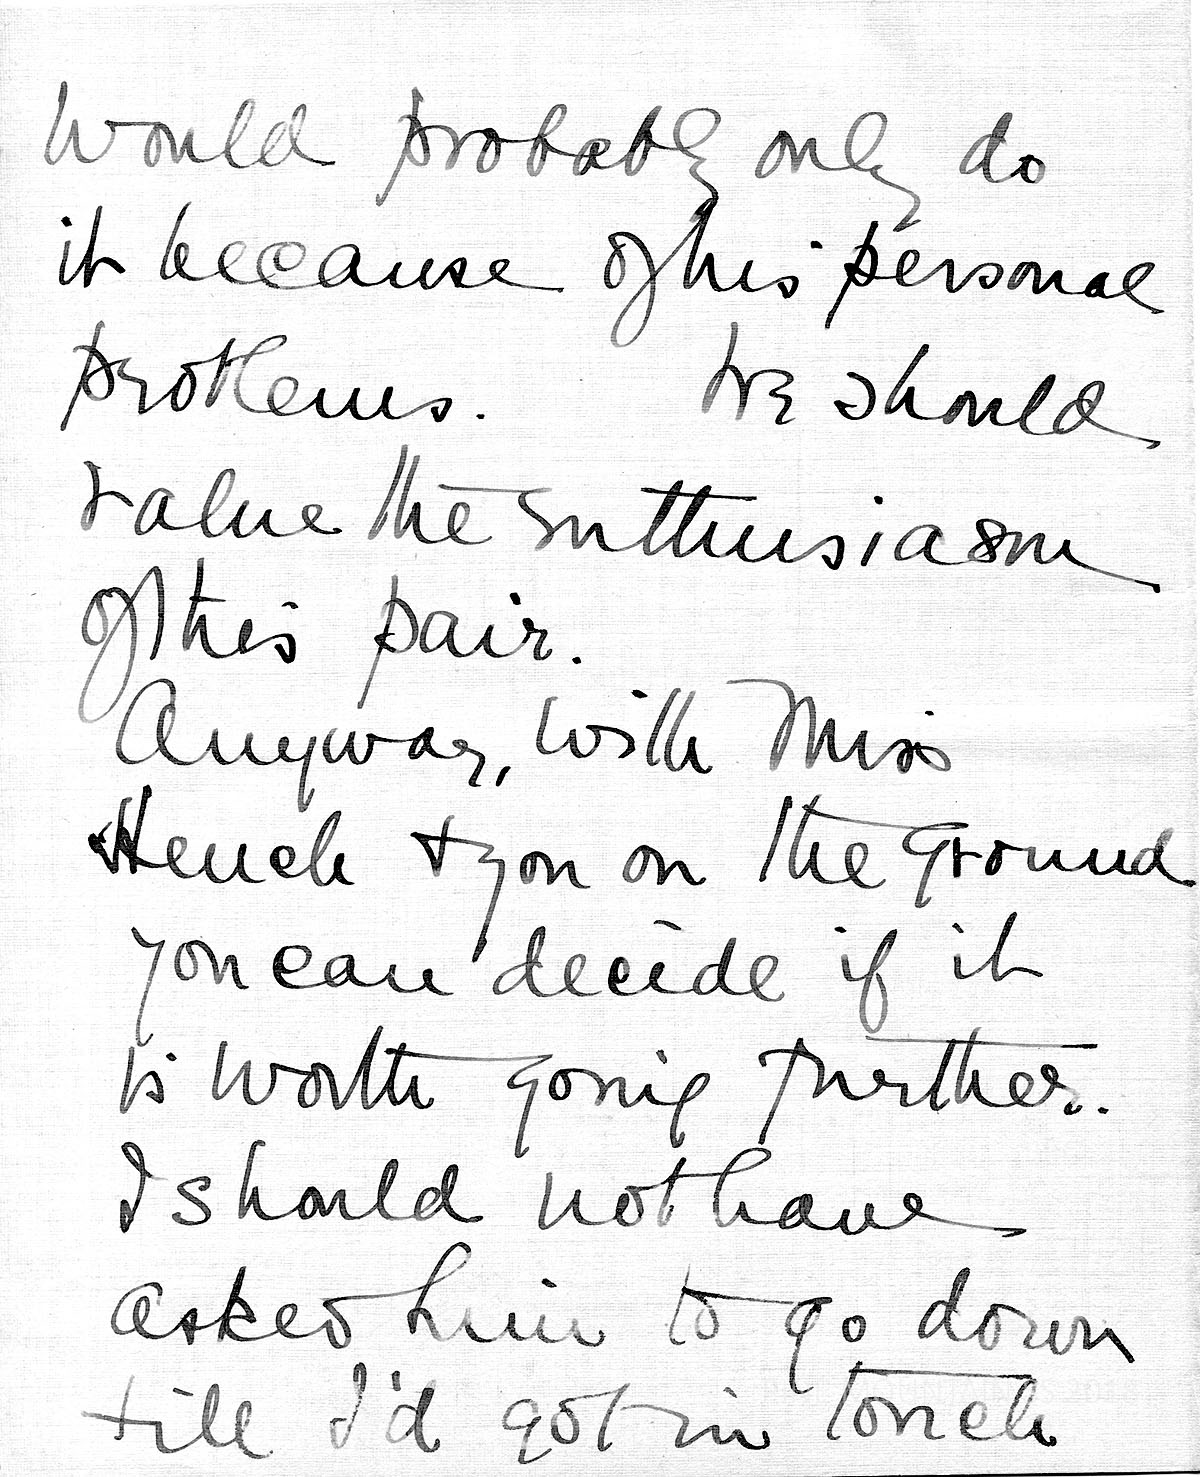 would probably only do
it because of his personal
problems. We should
value the enthusiasm
of this pair.
Anyway, with Miss
Hench + you on the ground
you can decide if it
is worth going further.
I should not have
asked him to go down
till I'd got in touch